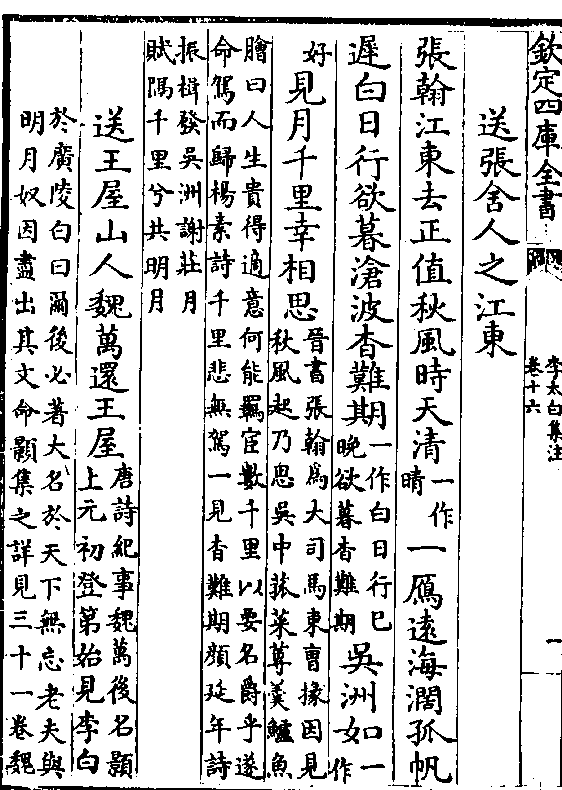 欽定四庫全書
李太白集注
卷十六
一
送張舍人之江東
張翰江東去正值秋風時天清一作晴一鴈遠海濶孤帆
遲白日行欲暮滄波杳難期一作白日行已晚欲暮杳難期吳洲如一作
好見月千里幸相思晉書張翰爲大司馬東曹掾因見
秋風起乃思吳中菰菜蓴羮鱸魚
膾曰人生貴得適意何能羈宦數千里以要名爵乎遂
命駕而歸楊素詩千里悲無駕一見杳難期顔延年詩
振楫發吳洲謝莊月
賦隔千里兮共明月
送王屋山人魏萬還王屋唐詩紀事魏萬後名顥
上元初登第始見李白
於廣陵白曰爾後必著大名於天下無忘老夫與
明月奴因盡出其文命顥集之詳見三十一卷魏